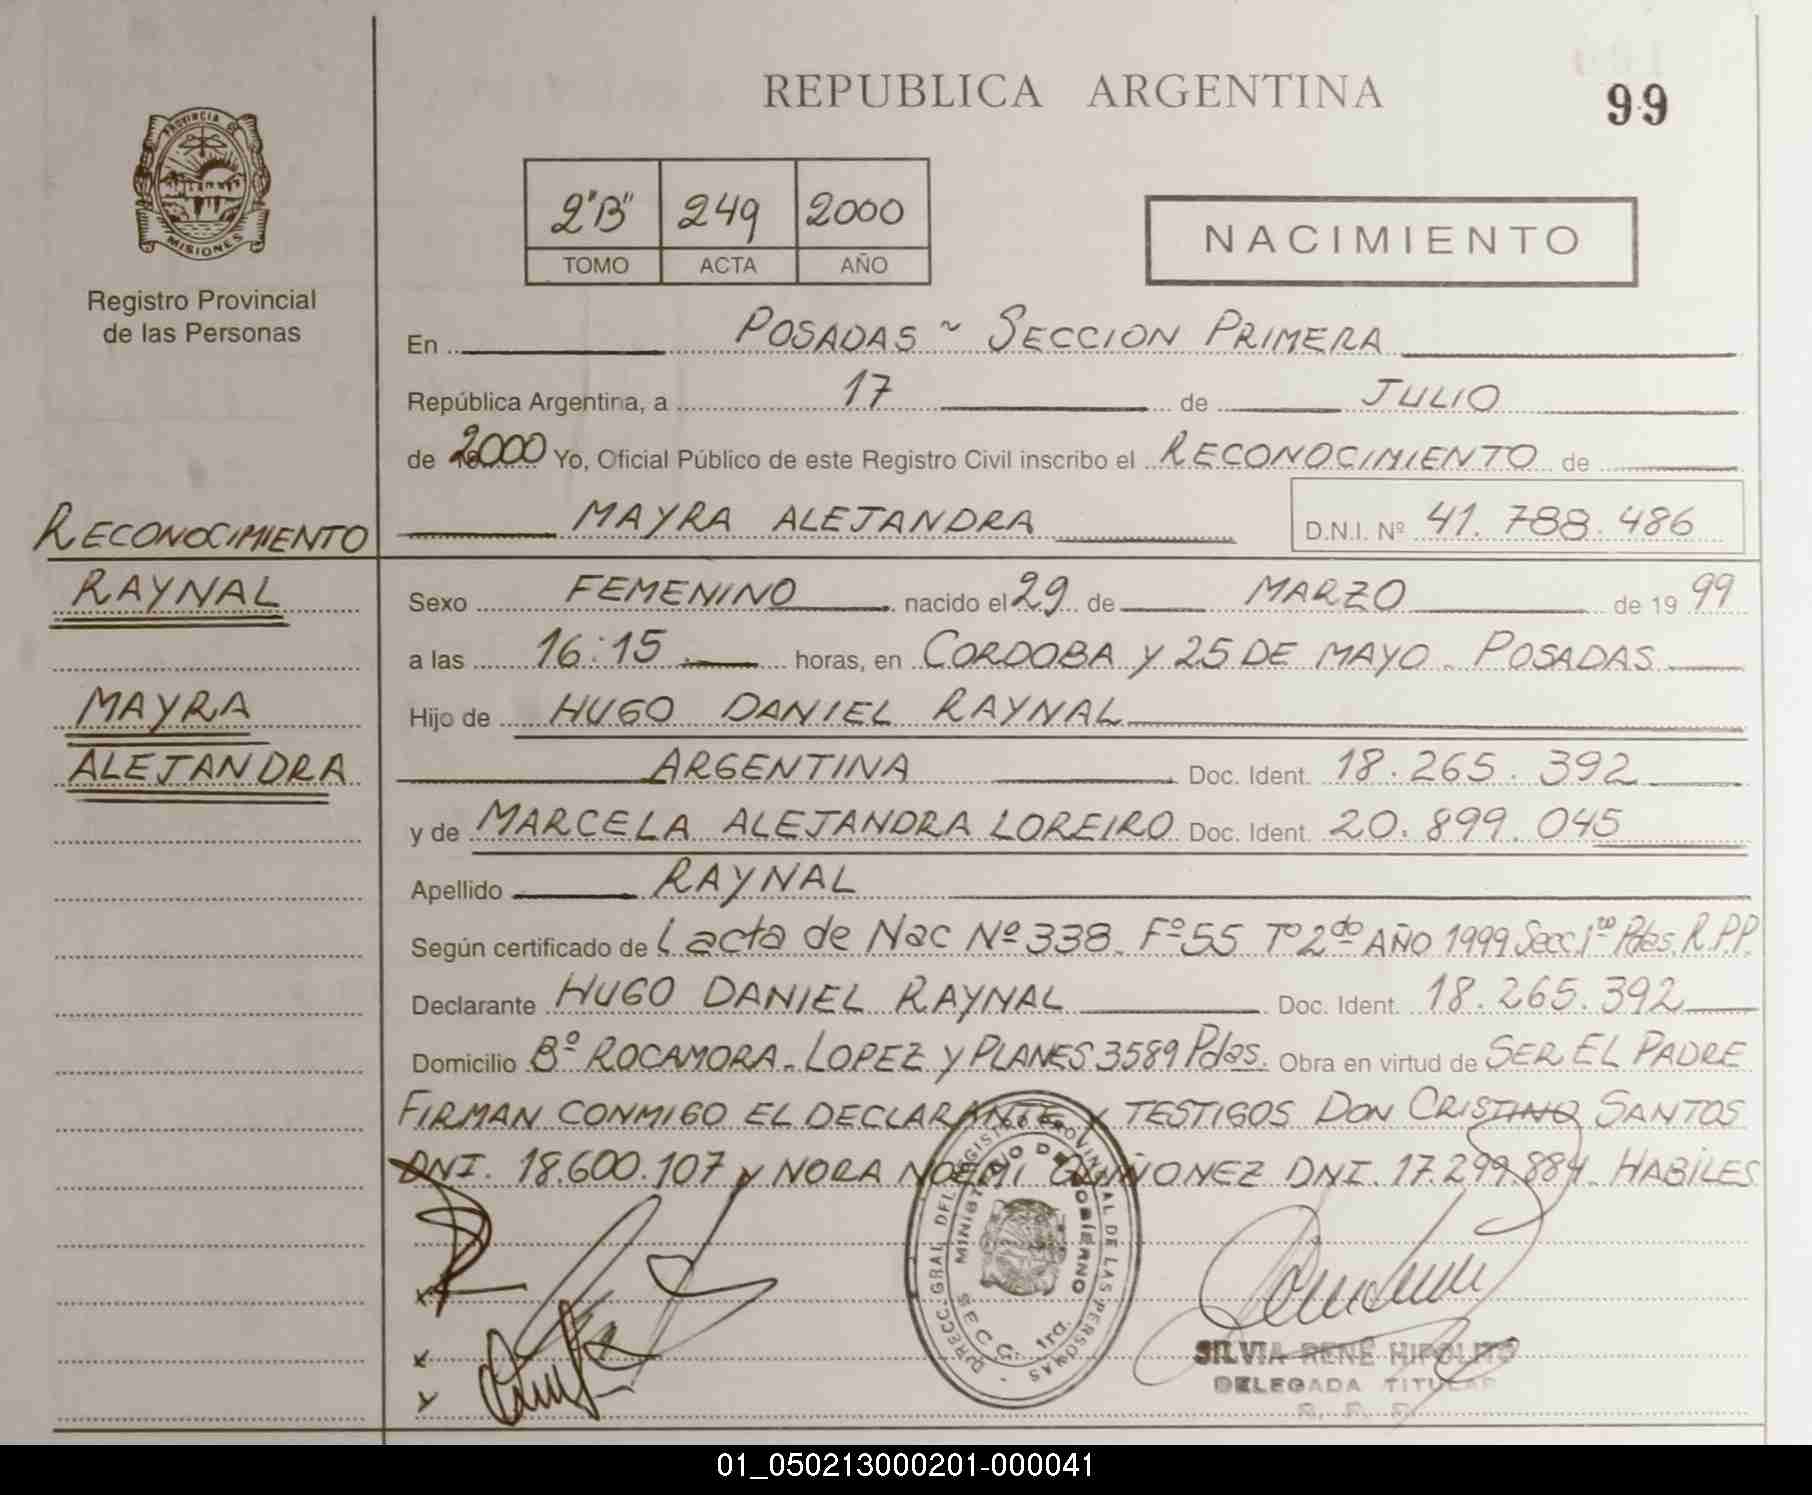 REPUBLICA ARGENTINA
99
PROVINCIA DE
MISIONES
Registro Provincial
de las Personas
2"B" 249 2000
TOMO ACTA AÑO
NACIMIENTO
En POSADAS ~ SECCION PRIMERA
República Argentina, a 17 de JULIO
de 2000 Yo, Oficial Público de este Registro Civil inscribo el RECONOCIMIENTO de
MAYRA ALEJANDRA D.N.I. Nº 41.788.486
RECONOCIMIENTO
RAYNAL
MAYRA
ALEJANDRA
Sexo FEMENINO nacido el 29 de MARZO de 19 99
a las 16:15 horas, en CORDOBA y 25 DE MAYO - POSADAS
Hijo de HUGO DANIEL RAYNAL
ARGENTINA Doc. Ident. 18.265.392
y de MARCELA ALEJANDRA LOREIRO Doc. Ident. 20.899.045
Apellido RAYNAL
Según certificado de L acta de Nac Nº 338 - Fº 55 Tº 2do AÑO 1999 Secc. 1ra Pdas. R.P.P.
Declarante HUGO DANIEL RAYNAL Doc. Ident. 18.265.392
Domicilio Bº ROCAMORA - LOPEZ y PLANES 3589 Pdas. Obra en virtud de SER EL PADRE
FIRMAN CONMIGO EL DECLARANTE y TESTIGOS DON CRISTINO SANTOS
DNI. 18.600.107 y NORA NOEMI QUIÑONEZ DNI. 17.299.884. HABILES
DIRECC. GRAL. DEL REGISTRO PROVINCIAL DE LAS PERSONAS
MINISTERIO DE GOBIERNO
SECC. 1ra.
SILVIA RENÉ HIPOLITO
DELEGADA TITULAR
R. P. P.
01_050213000201-000041